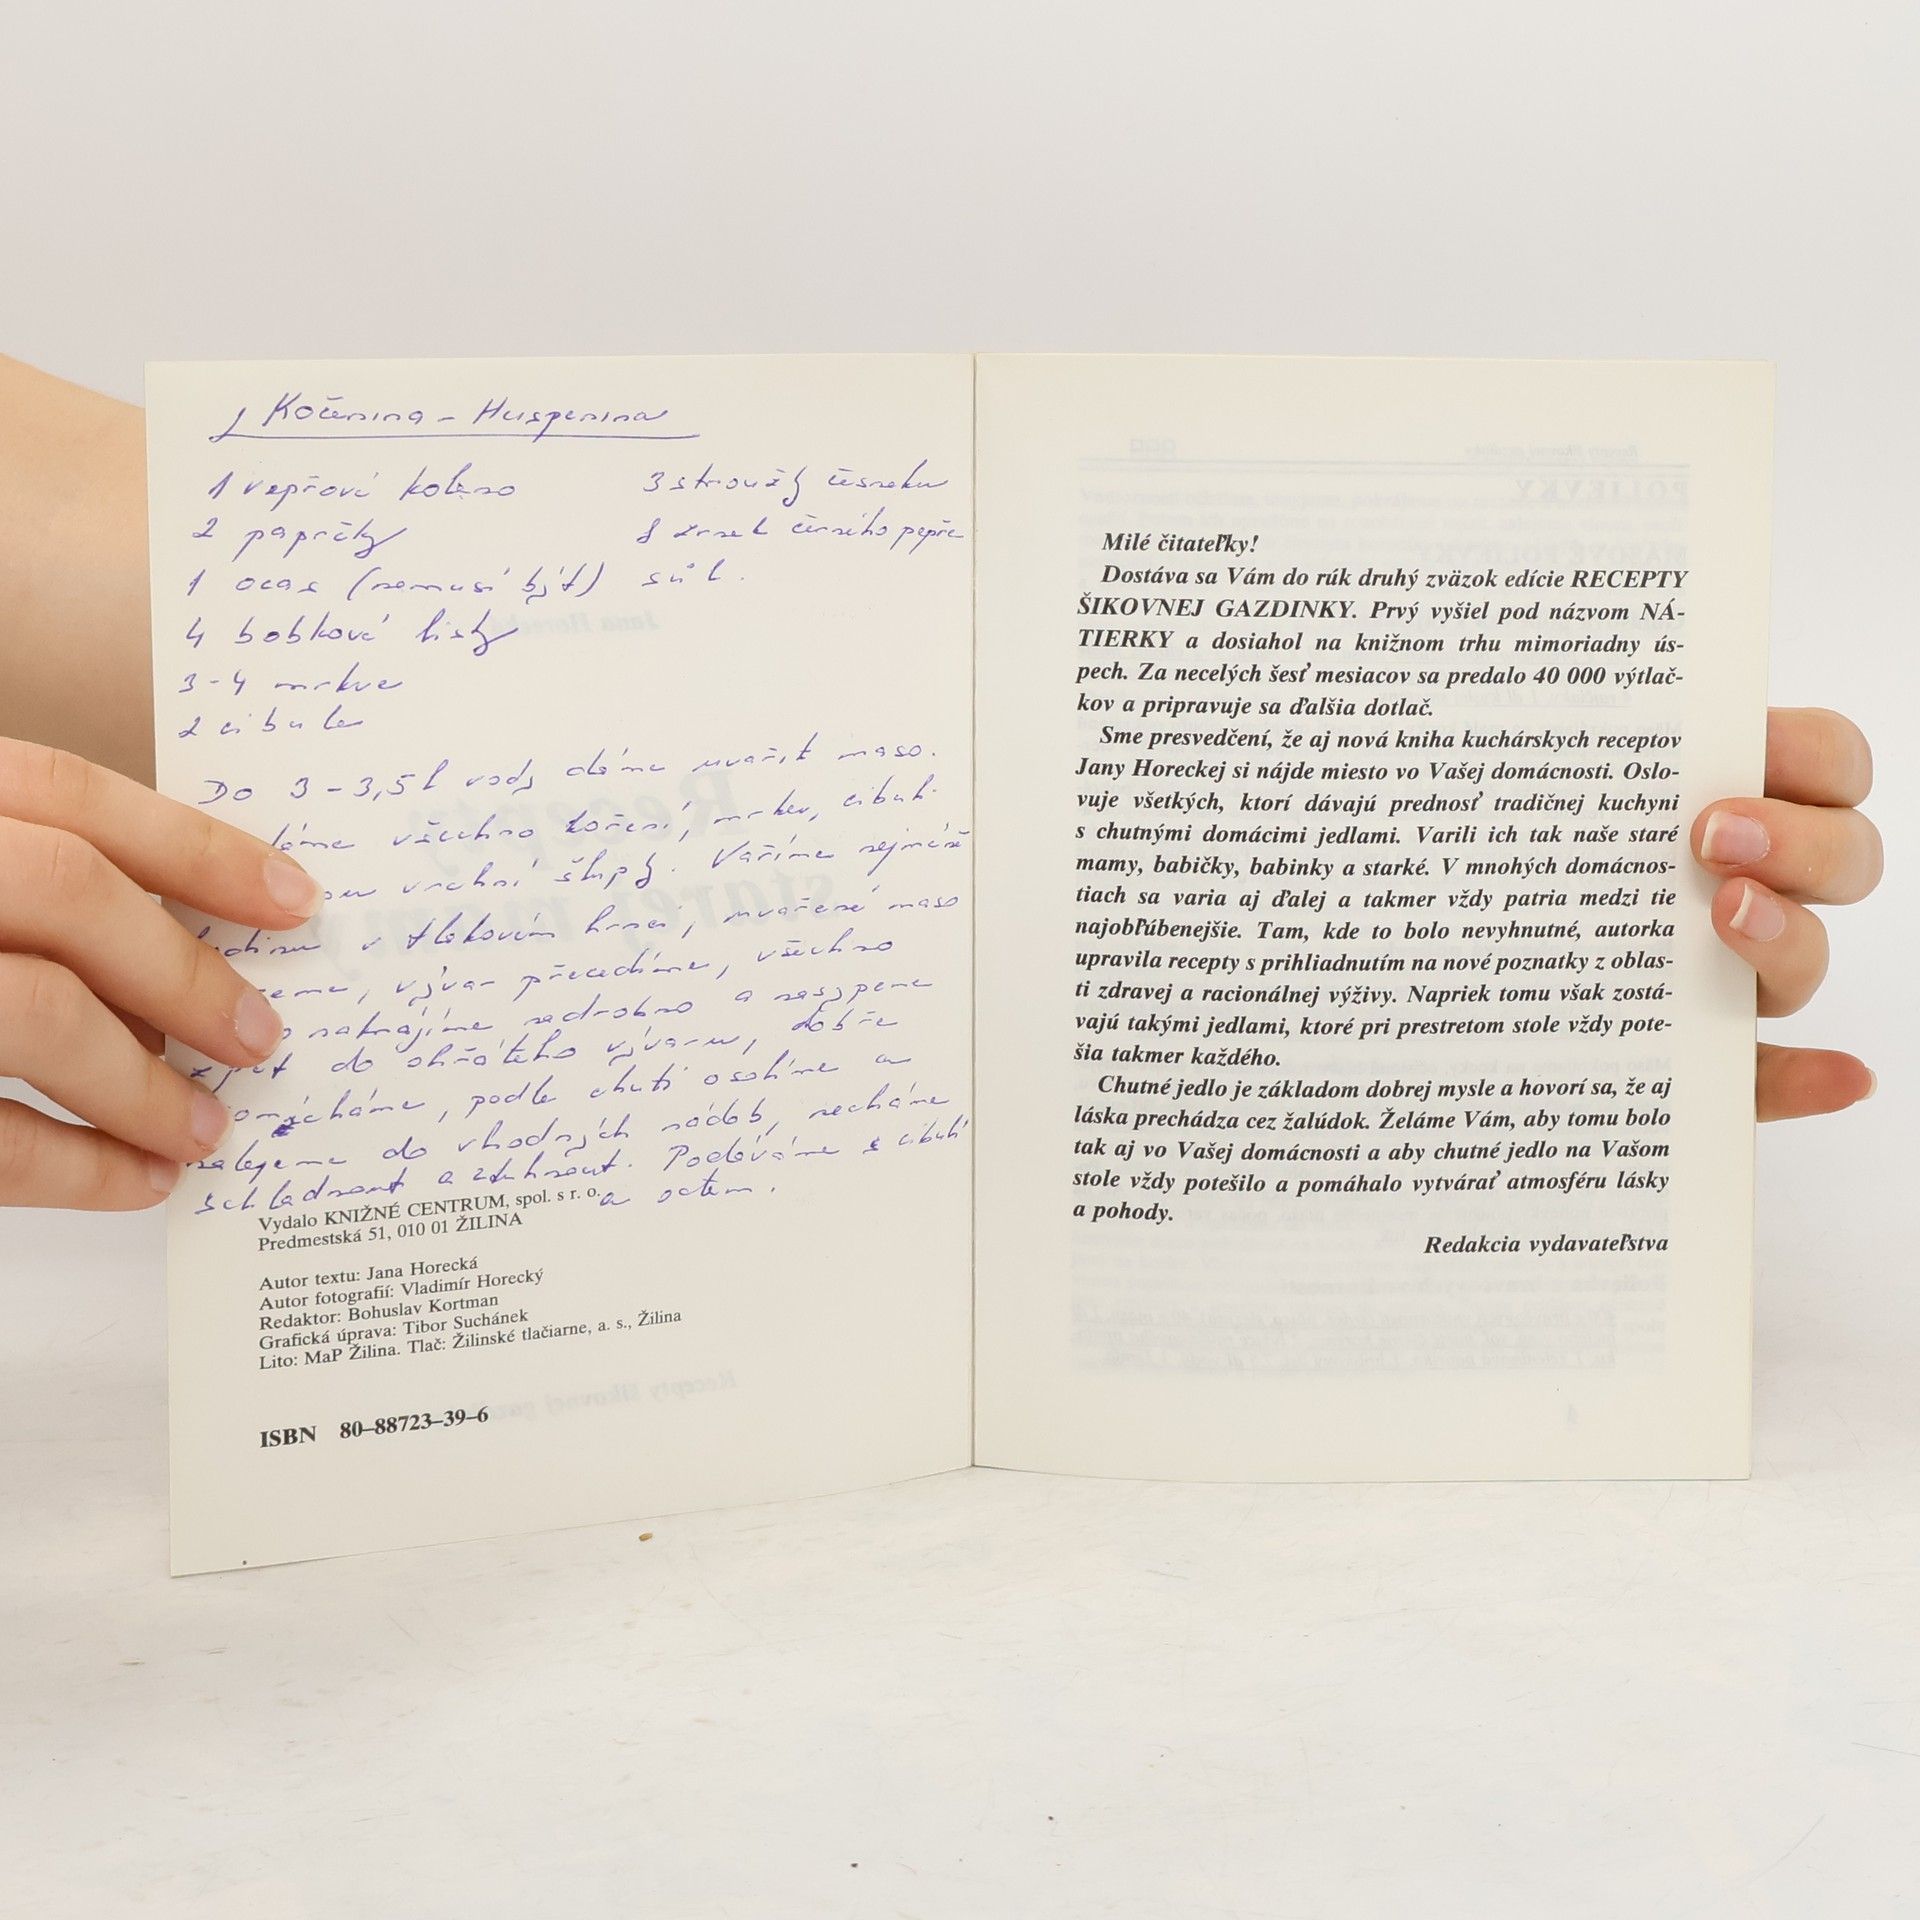 Kočenina - Huspenina
1 vepřové koleno
2 papričky
1 ocas (nemusí být)
4 bobkové listy
3-4 mrkve
2 cibule
3 stroužky česneku
8 zrnek černého pepře
sůl.
Do 3-3,5 l vody dáme uvařit maso.
všechno koření, mrkev, cibuli
vrchní šlupky. Vaříme nejméně
hodinu v tlakovém hrnci, uvařené maso
vývar přecedíme, všechno
nakrájíme nadrobno a nasypeme
zpět do ohřátého vývaru, dobře
podle chuti osolíme a
nalejeme do vhodných nádob, necháme
schladnout a ztuhnout. Podáváme s cibulí
a octem.
Vydalo KNIŽNÉ CENTRUM, spol. s r. o.
Predmestská 51, 010 01 ŽILINA
Autor textu: Jana Horecká
Autor fotografií: Vladimír Horecký
Redaktor: Bohuslav Kortman
Grafická úprava: Tibor Suchánek
Lito: MaP Žilina. Tlač: Žilinské tlačiarne, a. s., Žilina
ISBN 80–88723–39–6
Milé čitateľky!
Dostáva sa Vám do rúk druhý zväzok edície RECEPTY
ŠIKOVNEJ GAZDINKY. Prvý vyšiel pod názvom NÁ-
TIERKY a dosiahol na knižnom trhu mimoriadny ús-
pech. Za necelých šesť mesiacov sa predalo 40 000 výtlač-
kov a pripravuje sa ďalšia dotlač.
Sme presvedčení, že aj nová kniha kuchárskych receptov
Jany Horeckej si nájde miesto vo Vašej domácnosti. Oslo-
vuje všetkých, ktorí dávajú prednosť tradičnej kuchyni
s chutnými domácimi jedlami. Varili ich tak naše staré
mamy, babičky, babinky a starké. V mnohých domácnos-
tiach sa varia aj ďalej a takmer vždy patria medzi tie
najobľúbenejšie. Tam, kde to bolo nevyhnutné, autorka
upravila recepty s prihliadnutím na nové poznatky z oblas-
ti zdravej a racionálnej výživy. Napriek tomu však zostá-
vajú takými jedlami, ktoré pri prestretom stole vždy pote-
šia takmer každého.
Chutné jedlo je základom dobrej mysle a hovorí sa, že aj
láska prechádza cez žalúdok. Želáme Vám, aby tomu bolo
tak aj vo Vašej domácnosti a aby chutné jedlo na Vašom
stole vždy potešilo a pomáhalo vytvárať atmosféru lásky
a pohody.
Redakcia vydavateľstva